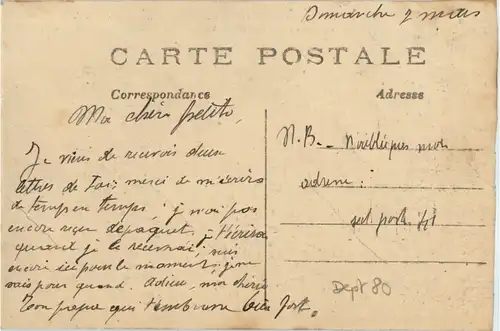 Dimanche 7 mars
CARTE POSTALE
Correspondance
Adresse
Ma chère petite,
Je viens de recevoir deux
lettres de toi, merci de m'écrire
de temps en temps; je n'ai pas
encore reçu de paquet, je t'écrirai
quand je le recevrai; suis
encore ici pour le moment, je ne
sais pour quand. Adieu, ma chérie
Ton papa qui t'embrasse bien fort.
N.B. - N'oublie pas mon
adresse:
sect. post. 41
Dept 80